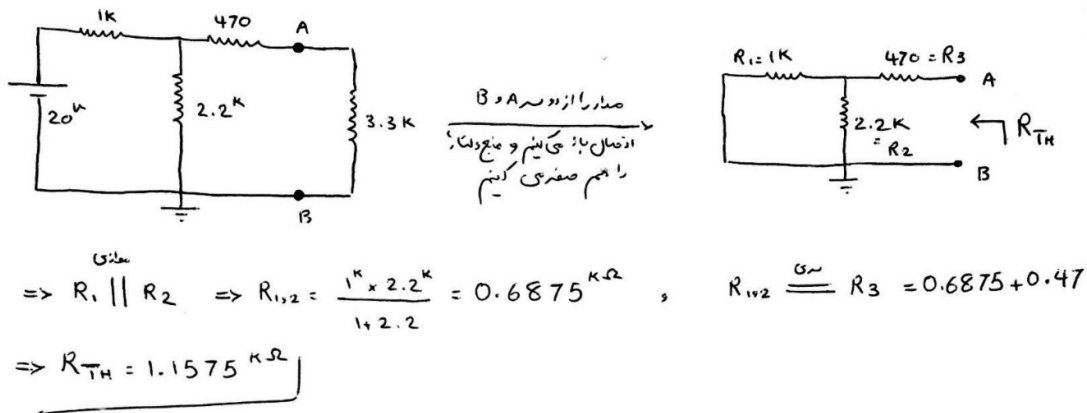 1K 470 A
20v 2.2K 3.3K
B
مدار را از دو سر A و B
اتصال باز می کنیم و منبع ولتاژ
را هم صفر می کنیم
R1 = 1K 470 = R3 A
2.2K = R2
RTH
B
موازی
=> R1 || R2 => R1,2 = 1K × 2.2K / 1+2.2 = 0.6875 KΩ ,
سری
R1,2 = R3 = 0.6875+0.47
=> RTH = 1.1575 KΩ